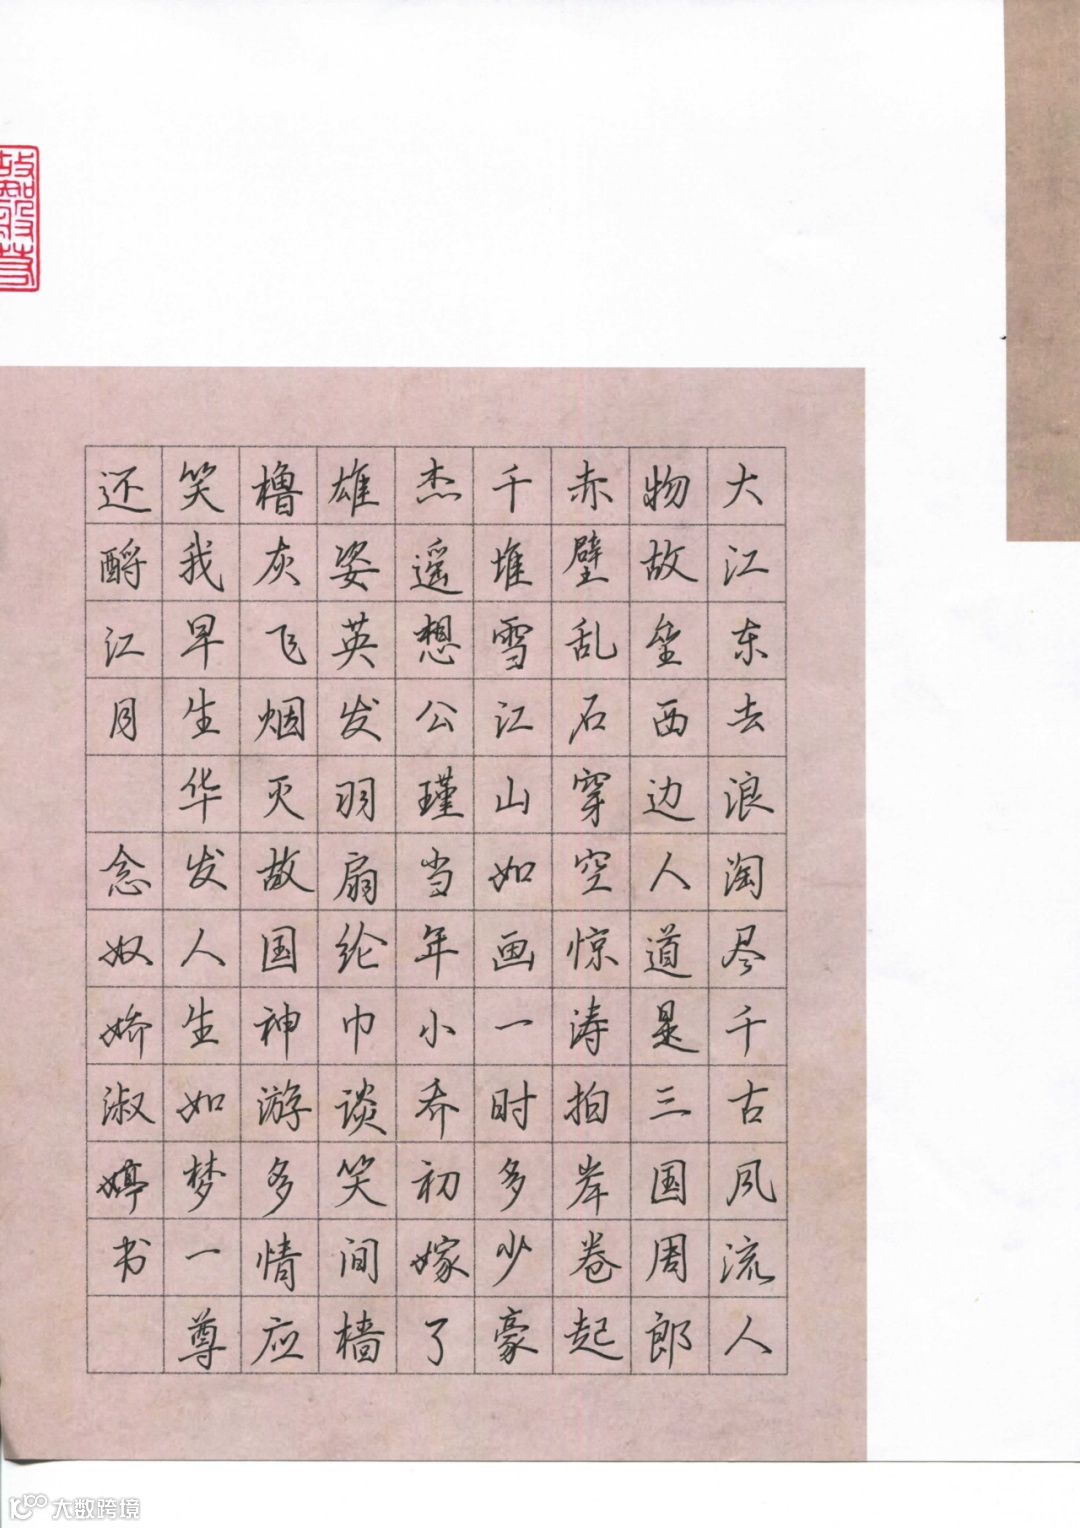 大江东去浪淘尽千古风流人
物故垒西边人道是三国周郎
赤壁乱石穿空惊涛拍岸卷起
千堆雪江山如画一时多少豪
杰遥想公瑾当年小乔初嫁了
雄姿英发羽扇纶巾谈笑间樯
橹灰飞烟灭故国神游多情应
笑我早生华发人生如梦一尊
还酹江月 念奴娇淑婷书
大数跨境